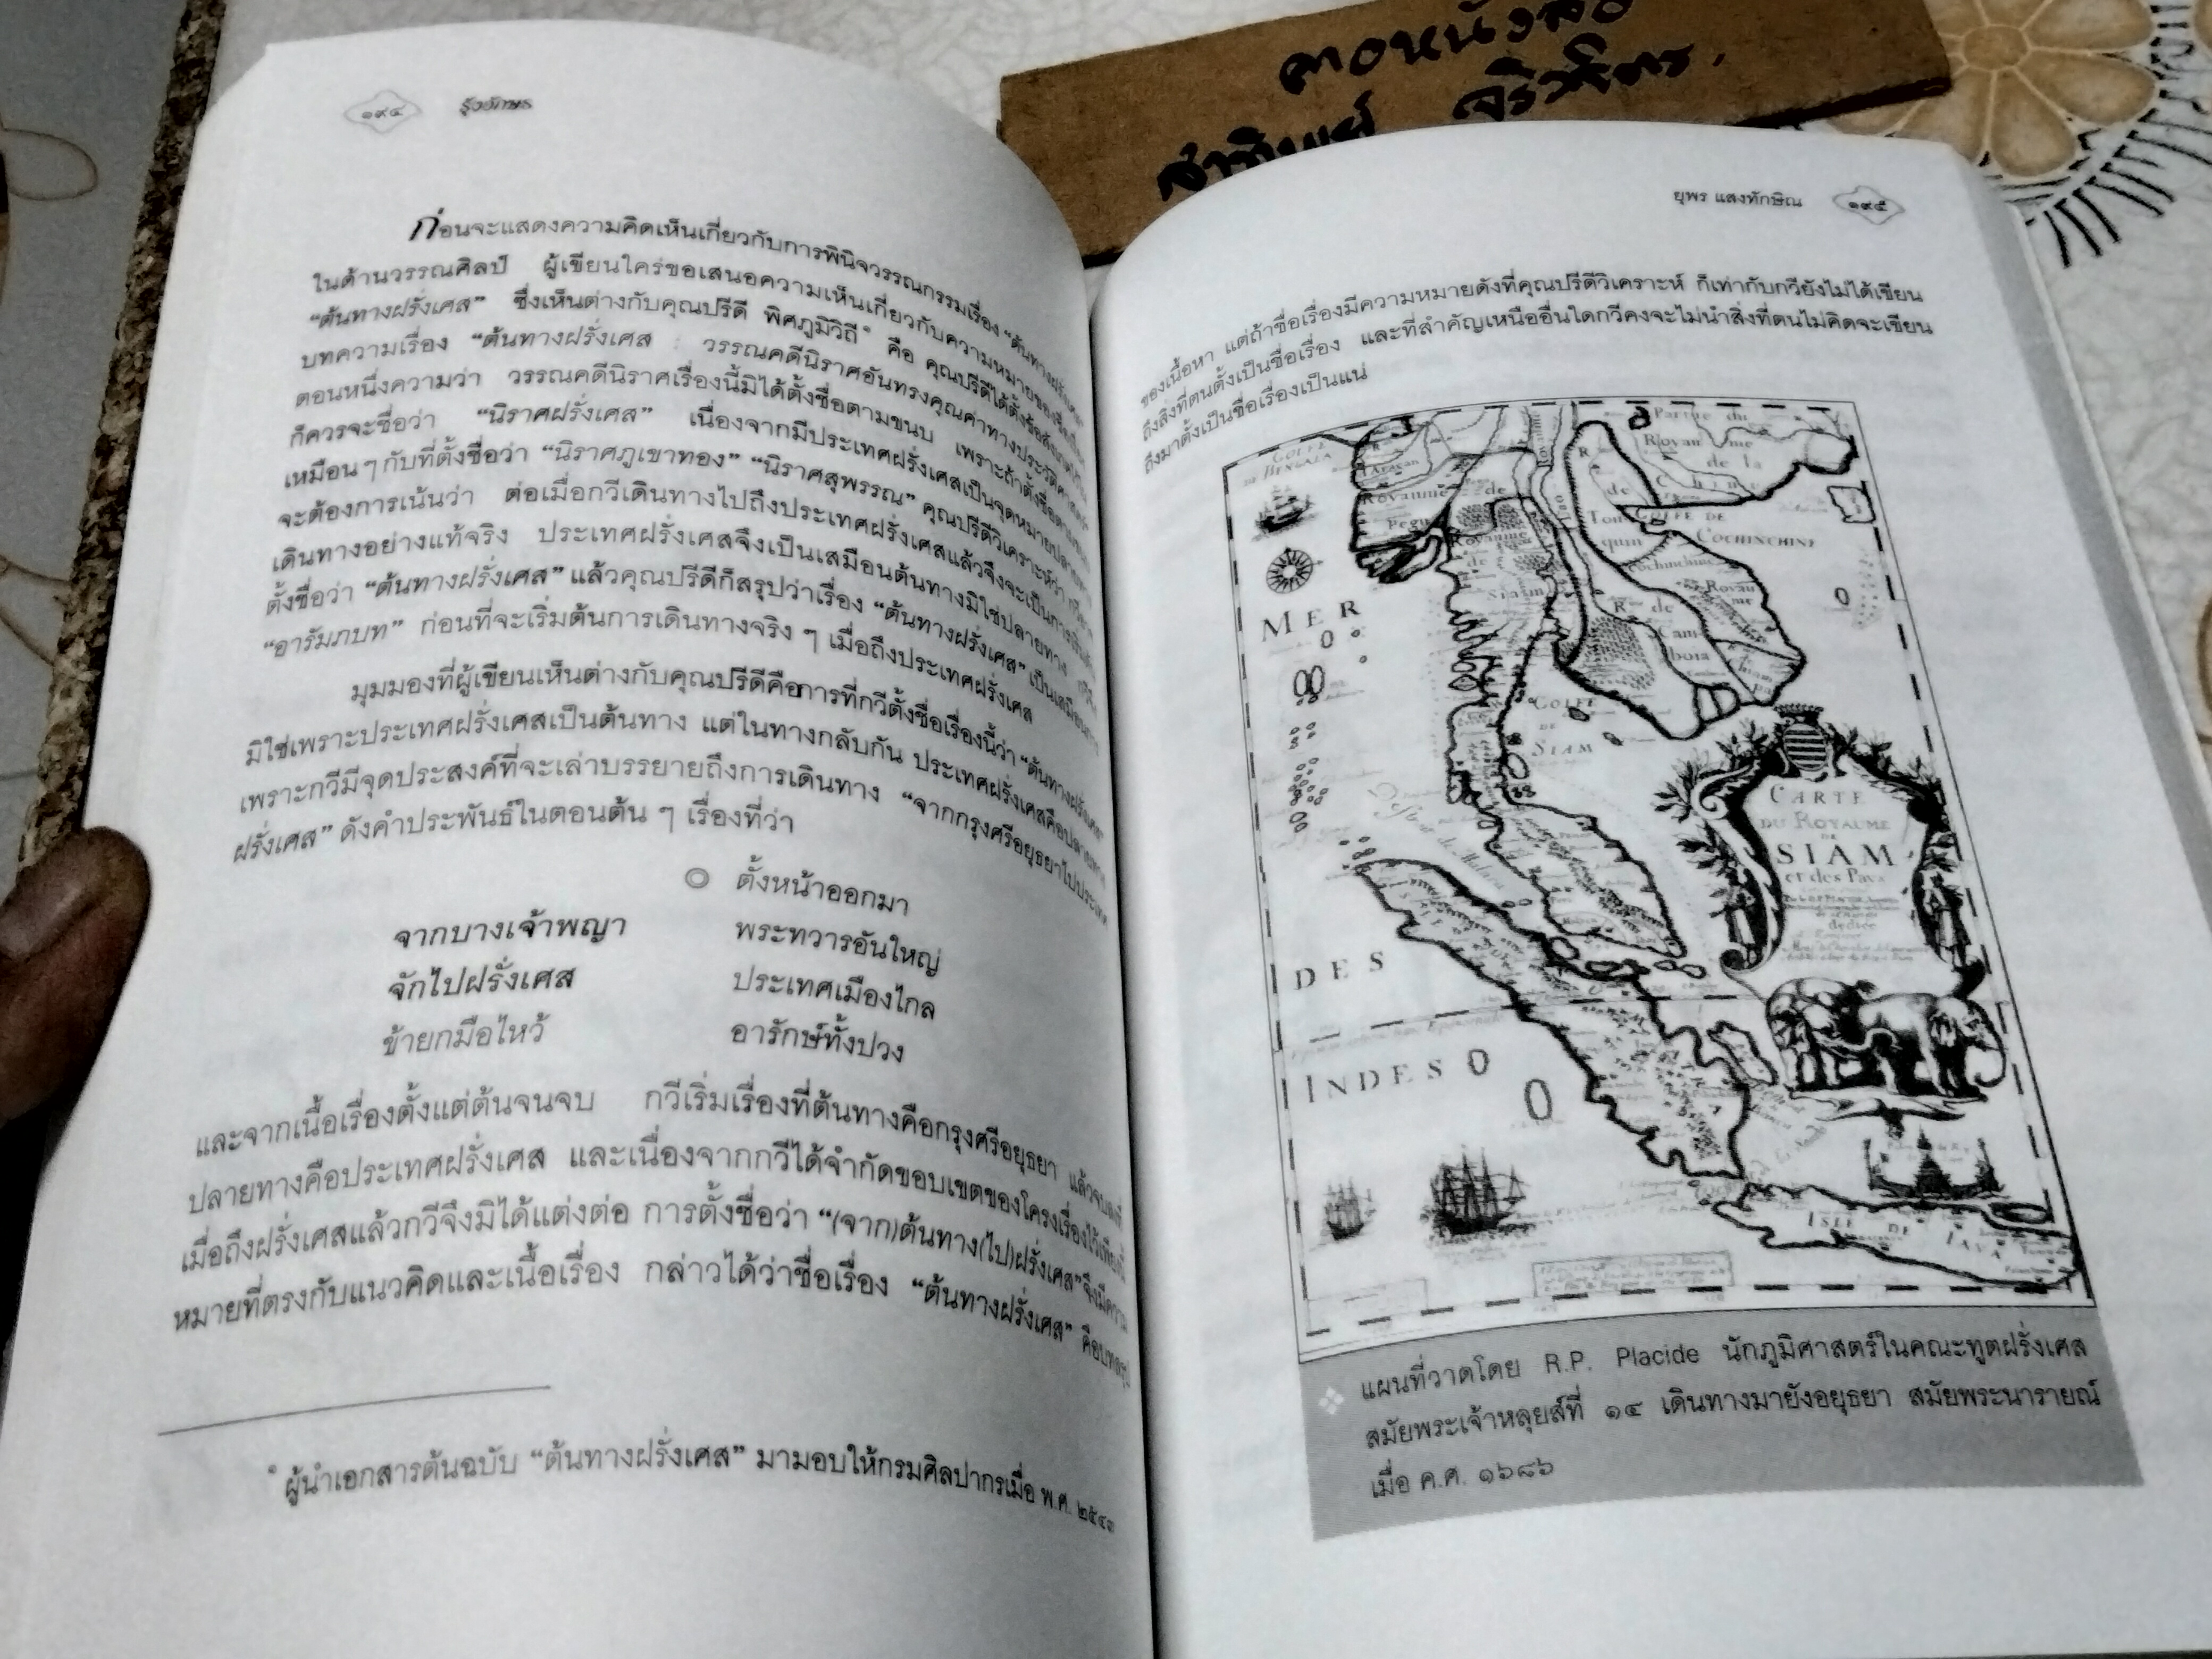 ๑๙๔ รุ้งอักษร
ก่อนจะแสดงความคิดเห็นเกี่ยวกับการพินิจวรรณกรรมเรื่อง “ต้นทางฝรั่งเศส”
ในด้านวรรณศิลป์ ผู้เขียนใคร่ขอเสนอความเห็นเกี่ยวกับความหมายของชื่อเรื่อง
“ต้นทางฝรั่งเศส” ซึ่งเห็นต่างกับคุณปรีดี พิศภูมิวิถี* คือ คุณปรีดีได้ตั้งข้อสังเกตไว้ใน
บทความเรื่อง “ต้นทางฝรั่งเศส : วรรณคดีนิราศอันทรงคุณค่าทางประวัติศาสตร์”
ตอนหนึ่งความว่า วรรณคดีนิราศเรื่องนี้มิได้ตั้งชื่อตามขนบ เพราะถ้าตั้งชื่อตามขนบ
ก็ควรจะชื่อว่า “นิราศฝรั่งเศส” เนื่องจากมีประเทศฝรั่งเศสเป็นจุดหมายปลายทาง
เหมือน ๆ กับที่ตั้งชื่อว่า “นิราศภูเขาทอง” “นิราศสุพรรณ” คุณปรีดีวิเคราะห์ว่า
จะต้องการเน้นว่า ต่อเมื่อกวีเดินทางไปถึงประเทศฝรั่งเศสแล้วจึงจะเป็นการ
เดินทางอย่างแท้จริง ประเทศฝรั่งเศสจึงเป็นเสมือนต้นทางมิใช่ปลายทาง
ตั้งชื่อว่า “ต้นทางฝรั่งเศส” แล้วคุณปรีดีก็สรุปว่าเรื่อง “ต้นทางฝรั่งเศส” เป็นเสมือน
“อารัมภบท” ก่อนที่จะเริ่มต้นการเดินทางจริง ๆ เมื่อถึงประเทศฝรั่งเศส
มุมมองที่ผู้เขียนเห็นต่างกับคุณปรีดีคือการที่กวีตั้งชื่อเรื่องนี้ว่า “ต้นทางฝรั่งเศส”
มิใช่เพราะประเทศฝรั่งเศสเป็นต้นทาง แต่ในทางกลับกัน ประเทศฝรั่งเศสคือปลายทาง
เพราะกวีมีจุดประสงค์ที่จะเล่าบรรยายถึงการเดินทาง “จากกรุงศรีอยุธยาไปประเทศ
ฝรั่งเศส” ดังคำประพันธ์ในตอนต้น ๆ เรื่องที่ว่า
๏ ตั้งหน้าออกมา
จากบางเจ้าพญา พระทวารอันใหญ่
จักไปฝรั่งเศส ประเทศเมืองไกล
ข้ายกมือไหว้ อารักษ์ทั้งปวง
และจากเนื้อเรื่องตั้งแต่ต้นจนจบ กวีเริ่มเรื่องที่ต้นทางคือกรุงศรีอยุธยา แล้วจบลงที่
ปลายทางคือประเทศฝรั่งเศส และเนื่องจากกวีได้จำกัดขอบเขตของโครงเรื่องไว้เพียงนี้
เมื่อถึงฝรั่งเศสแล้วกวีจึงมิได้แต่งต่อ การตั้งชื่อว่า “(จาก)ต้นทาง(ไป)ฝรั่งเศส” จึงมีความ
หมายที่ตรงกับแนวคิดและเนื้อเรื่อง กล่าวได้ว่าชื่อเรื่อง “ต้นทางฝรั่งเศส” คือบทสรุป
* ผู้นำเอกสารต้นฉบับ “ต้นทางฝรั่งเศส” มามอบให้กรมศิลปากรเมื่อ พ.ศ. ๒๕๔๓
ยุพร แสงทักษิณ ๑๙๕
ของเนื้อหา แต่ถ้าชื่อเรื่องมีความหมายดังที่คุณปรีดีวิเคราะห์ ก็เท่ากับกวียังไม่ได้เขียน
ถึงสิ่งที่ตนตั้งเป็นชื่อเรื่อง และที่สำคัญเหนืออื่นใดกวีคงจะไม่นำสิ่งที่ตนไม่คิดจะเขียน
ถึงมาตั้งเป็นชื่อเรื่องเป็นแน่
GOLFE
DE BENGALA
Aracan
Royaume de
Pegu
Royaume
de
Siam
Partie du
Royaume
de la
Chine
Tonquin
GOLFE DE
COCHINCHINE
Cochinchine
Royaume
R. de
Camboia
Chiampa
MER
GOLFE
DE
SIAM
DES
INDES
CARTE
DU ROYAUME
DE
SIAM
et des Pays
dediée
ISLE DE IAVA
แผนที่วาดโดย R.P. Placide นักภูมิศาสตร์ในคณะทูตฝรั่งเศส
สมัยพระเจ้าหลุยส์ที่ ๑๔ เดินทางมายังอยุธยา สมัยพระนารายณ์
เมื่อ ค.ศ. ๑๖๘๖